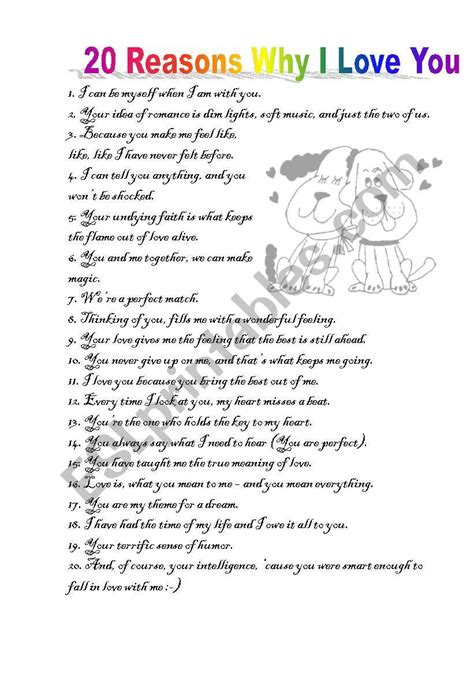 20 Reasons Why I Love You
1. I can be myself when I am with you.
2. Your idea of romance is dim lights, soft music, and just the two of us.
3. Because you make me feel like,
like, like I have never felt before.
4. I can tell you anything, and you
won't be shocked.
5. Your undying faith is what keeps
the flame out of love alive.
6. You and me together, we can make
magic.
7. We're a perfect match.
8. Thinking of you, fills me with a wonderful feeling.
9. Your love gives me the feeling that the best is still ahead.
10. You never give up on me, and that's what keeps me going.
11. I love you because you bring the best out of me.
12. Every time I look at you, my heart misses a beat.
13. You're the one who holds the key to my heart.
14. You always say what I need to hear (You are perfect).
15. You have taught me the true meaning of love.
16. Love is, what you mean to me – and you mean everything.
17. You are my theme for a dream.
18. I have had the time of my life and I owe it all to you.
19. Your terrific sense of humor.
20. And, of course, your intelligence, 'cause you were smart enough to
fall in love with me :-)
ESLprintables.com